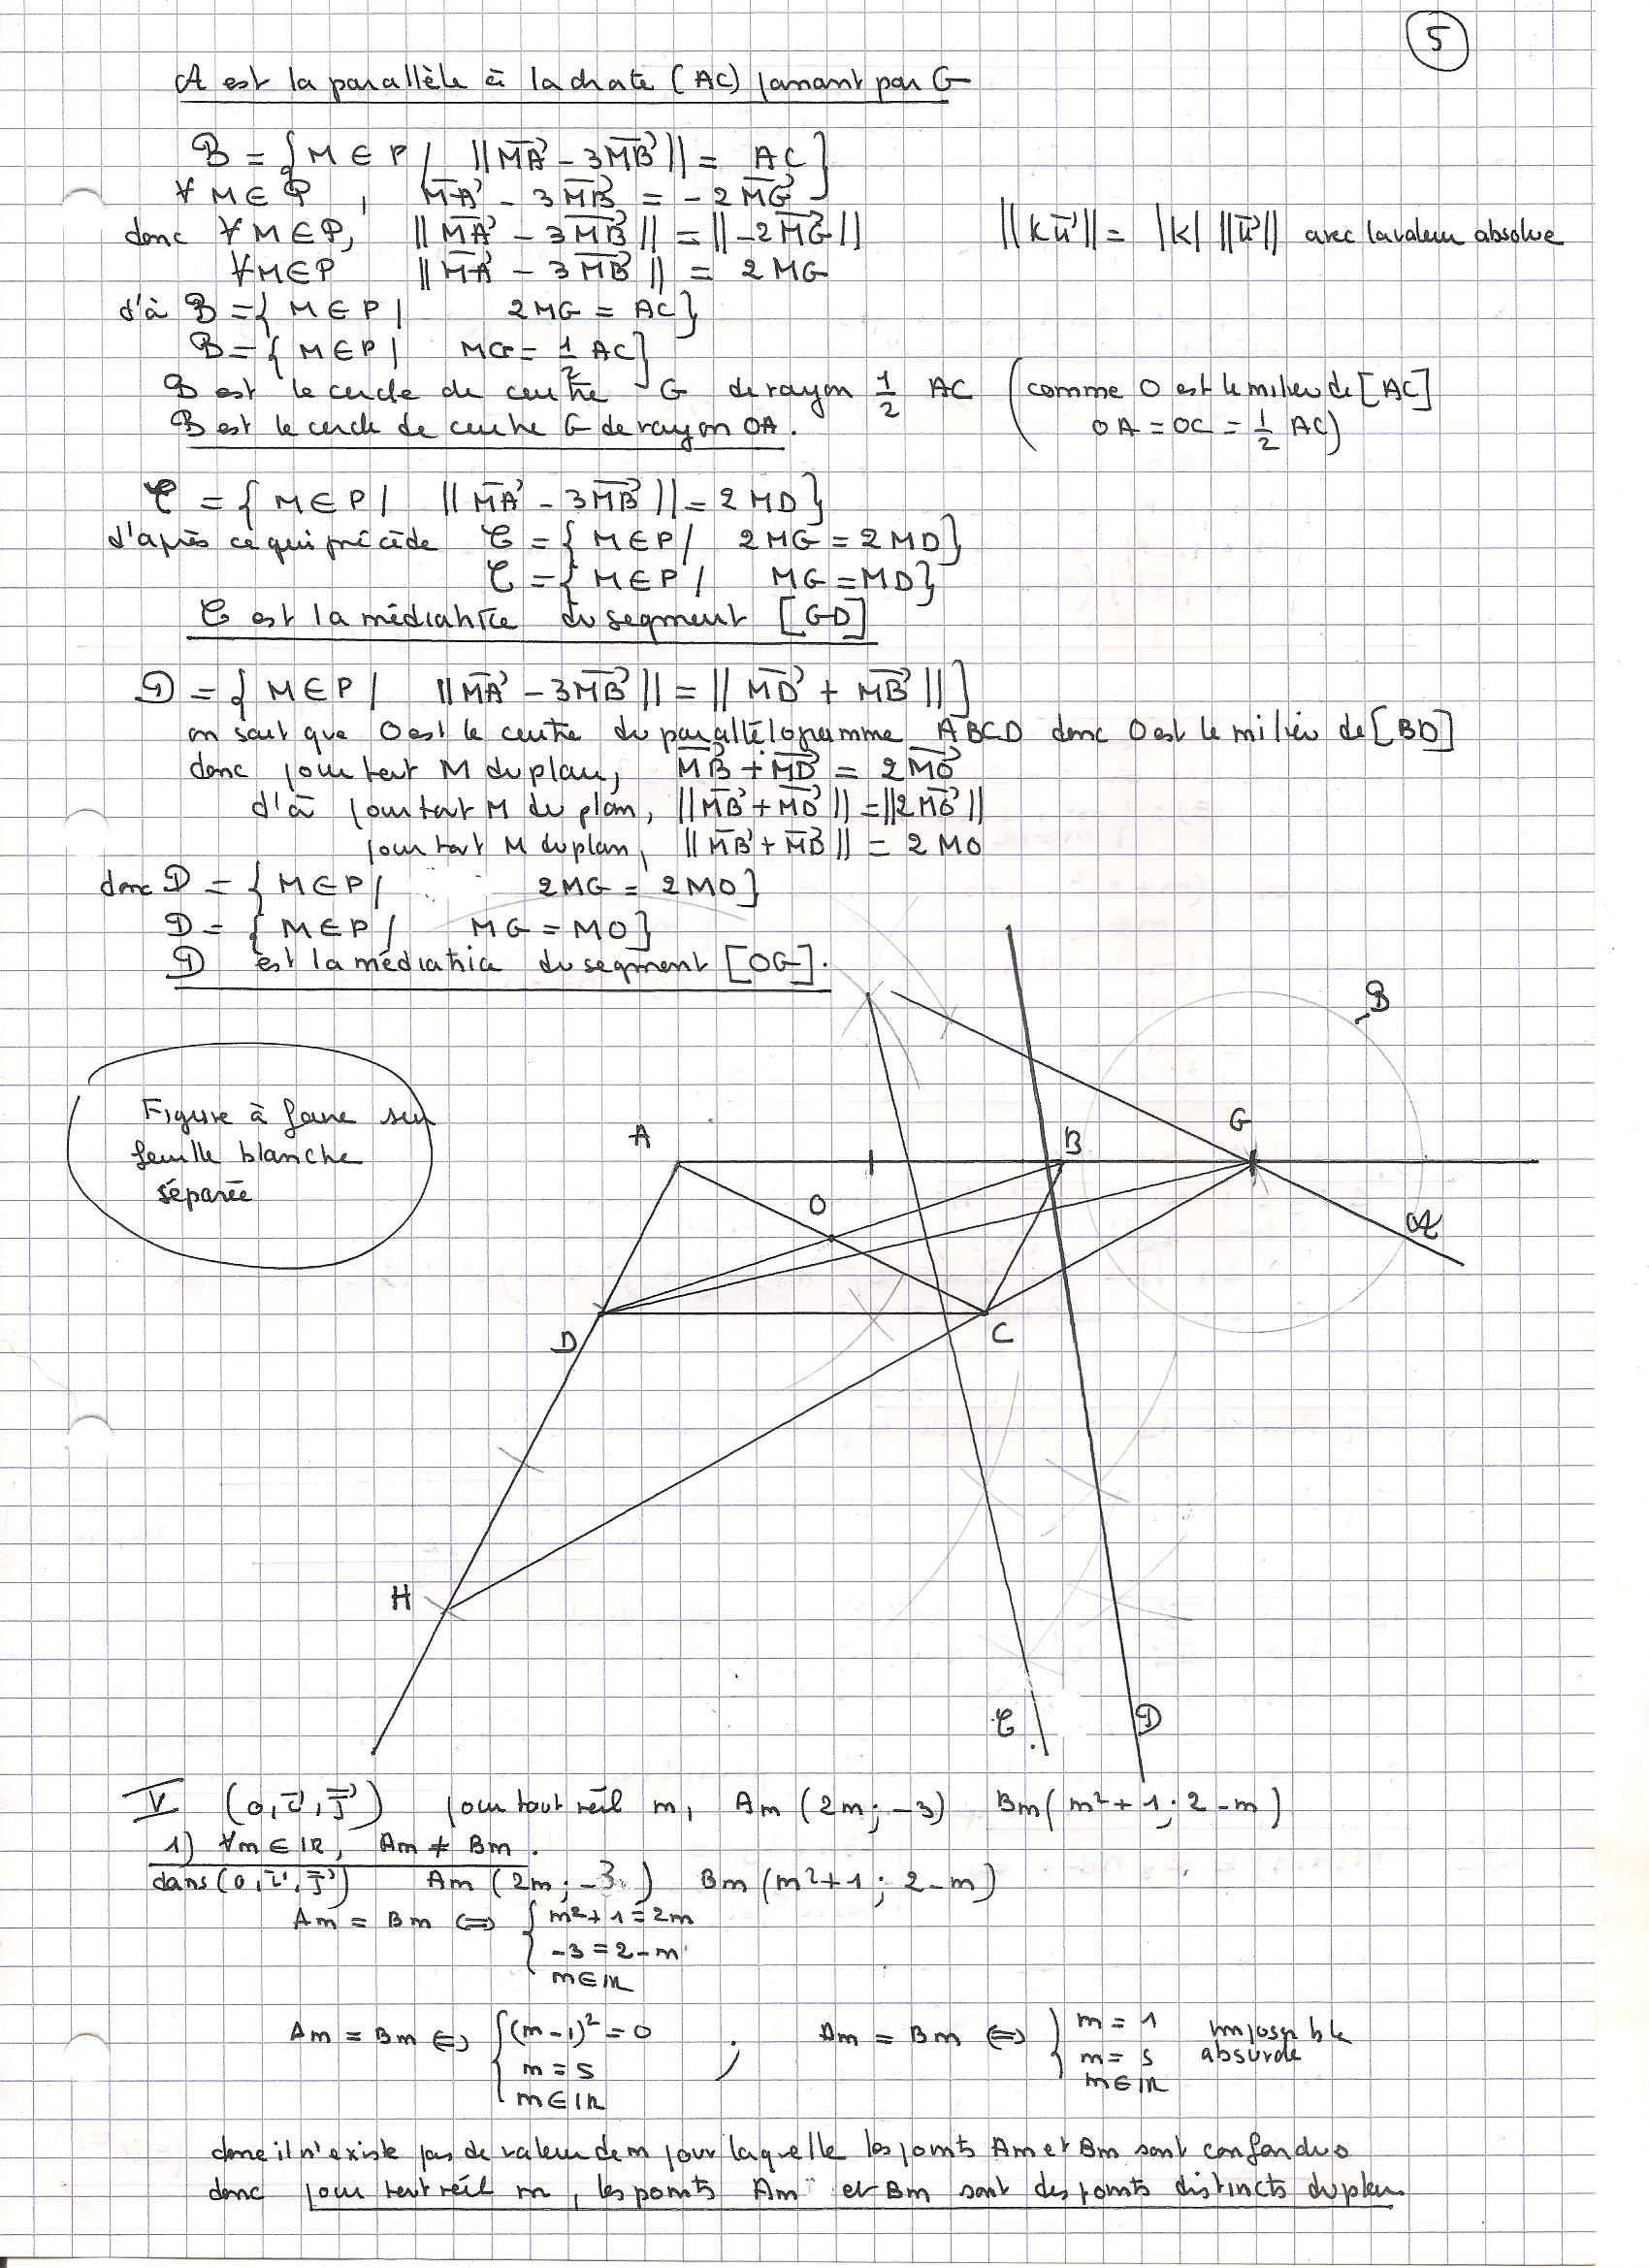 5
A est la parallèle à la droite (AC) passant par G
B = { M ∈ P / ||MA⃗ - 3MB⃗|| = AC }
∀ M ∈ P, MA⃗ - 3MB⃗ = -2MG⃗
donc ∀ M ∈ P, ||MA⃗ - 3MB⃗|| = ||-2MG⃗|| ||ku⃗|| = |k| ||u⃗|| avec la valeur absolue
∀ M ∈ P ||MA⃗ - 3MB⃗|| = 2MG
d'où B = { M ∈ P / 2MG = AC }
B = { M ∈ P / MG = 1/2 AC }
B est le cercle de centre G de rayon 1/2 AC (comme O est le milieu de [AC]
B est le cercle de centre G de rayon OA. OA = OC = 1/2 AC)
C = { M ∈ P / ||MA⃗ - 3MB⃗|| = 2MD }
d'après ce qui précède C = { M ∈ P / 2MG = 2MD }
C = { M ∈ P / MG = MD }
C est la médiatrice du segment [GD]
D = { M ∈ P / ||MA⃗ - 3MB⃗|| = ||MD⃗ + MB⃗|| }
on sait que O est le centre du parallélogramme ABCD donc O est le milieu de [BD]
donc pour tout M du plan, MB⃗ + MD⃗ = 2MO⃗
d'où pour tout M du plan, ||MB⃗ + MD⃗|| = ||2MO⃗||
pour tout M du plan, ||MB⃗ + MD⃗|| = 2MO
donc D = { M ∈ P / 2MG = 2MO }
D = { M ∈ P / MG = MO }
D est la médiatrice du segment [OG].
B
Figure à faire sur
feuille blanche
séparée
A
B
G
O
A
D
C
H
C
D
V (O, i⃗, j⃗) pour tout réel m, Am (2m ; -3) Bm (m²+1 ; 2-m)
1) ∀m ∈ IR, Am ≠ Bm.
dans (O, i⃗, j⃗) Am (2m ; -3) Bm (m²+1 ; 2-m)
Am = Bm ⇔ { m²+1 = 2m
-3 = 2-m
m ∈ IR
Am = Bm ⇔ { (m-1)² = 0 ; Am = Bm ⇔ { m = 1 impossible
m = 5 m = 5 absurde
m ∈ IR m ∈ IR
donc il n'existe pas de valeur de m pour laquelle les points Am et Bm sont confondus
donc pour tout réel m, les points Am et Bm sont des points distincts du plan